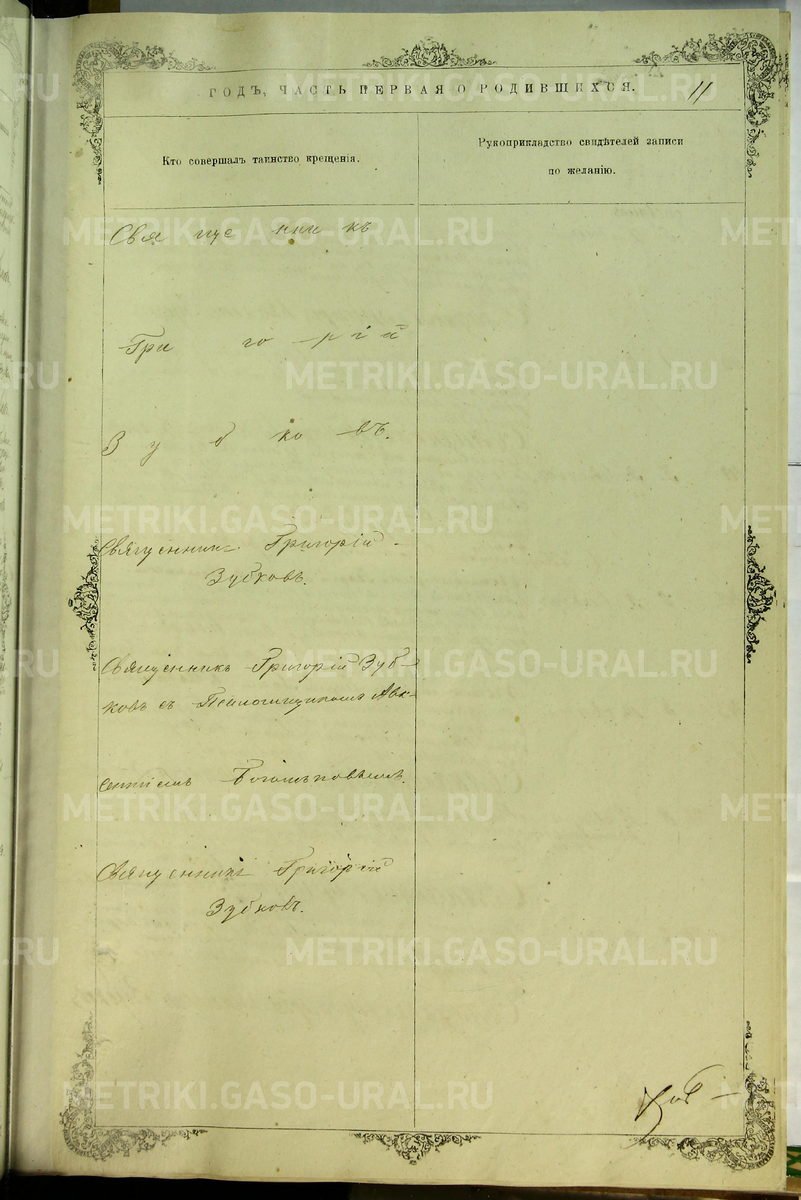 ГОДЪ, ЧАСТЬ ПЕРВАЯ О РОДИВШИХСЯ. 11
Кто совершалъ таинство крещенія.
Рукоприкладство свидѣтелей записи
по желанію.
Свя ще ник къ
Гри го рій
З у б ко въ.
Священникъ Григорій
Зубковъ.
Священникъ Григорій Зуб-
ковъ съ Псаломщикомъ Авк-
сентіемъ
Священникъ Григорій
Зубковъ.
METRIKI.GASO-URAL.RU